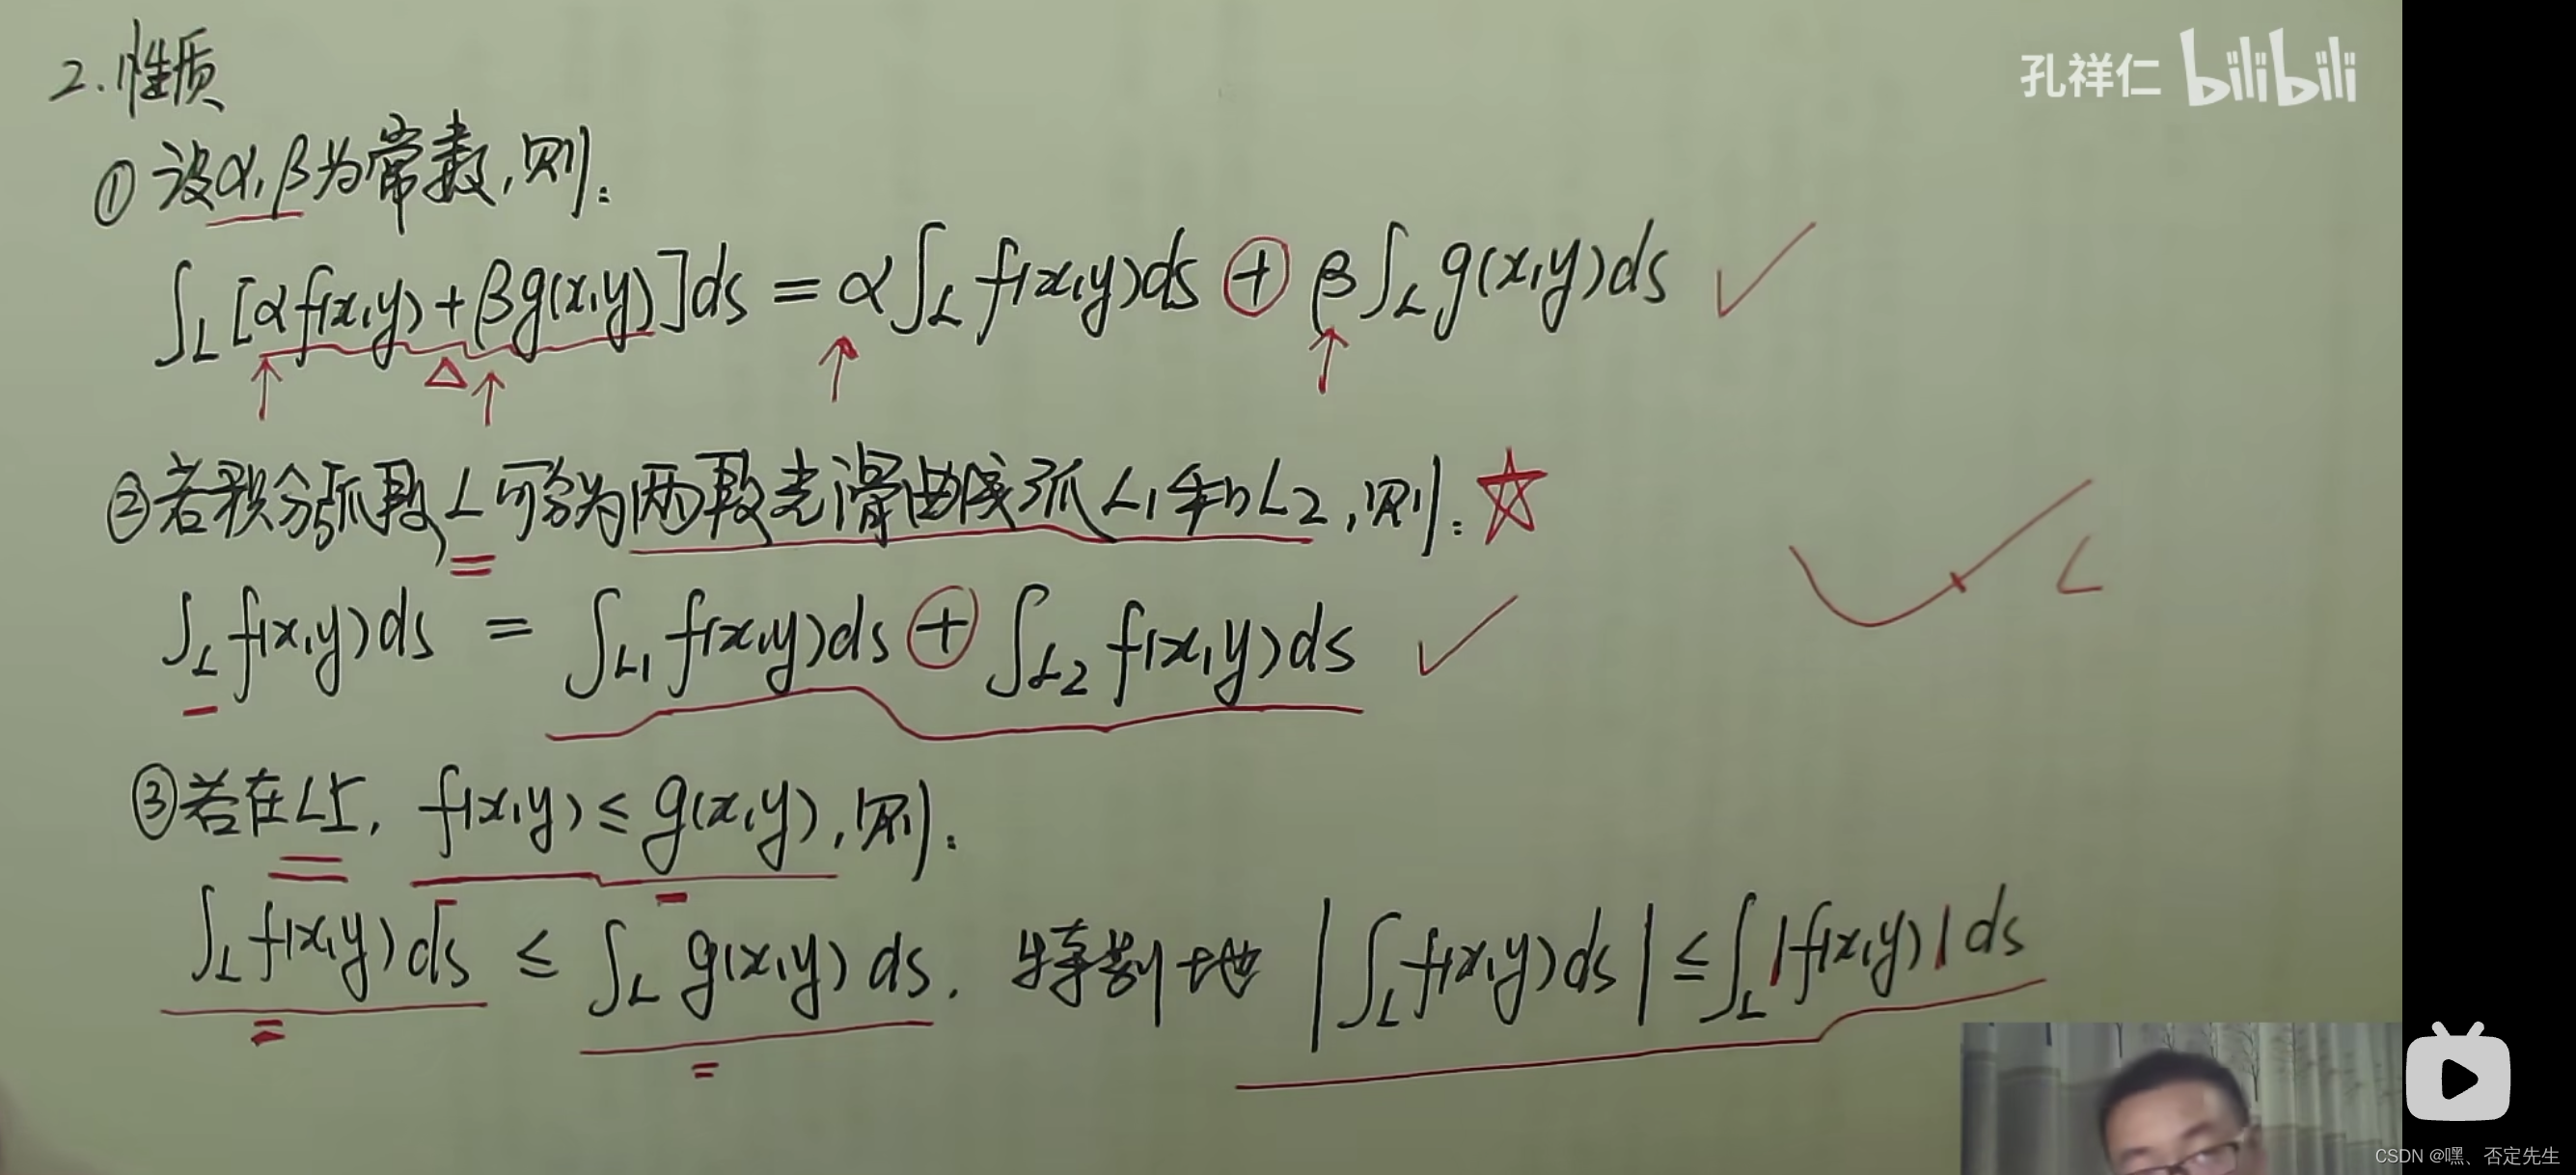 2.性质
孔祥仁 bilibili
①设α,β为常数,则:
∫L[αf(x,y)+βg(x,y)]ds = α∫L f(x,y)ds + β∫L g(x,y)ds
②若积分弧段L可分为两段光滑曲线弧L1和L2,则:
L
∫L f(x,y)ds = ∫L1 f(x,y)ds + ∫L2 f(x,y)ds
③若在L上, f(x,y)≤g(x,y),则:
∫L f(x,y)ds ≤ ∫L g(x,y)ds. 特别地 |∫L f(x,y)ds|≤∫L|f(x,y)|ds
CSDN @嘿、否定先生